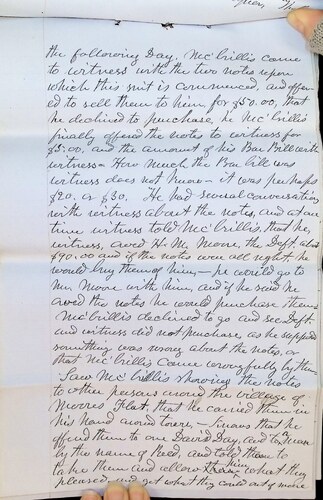 the following Day, McCrillis came
to witness with the two notes upon
which this suit is commenced, and offer-
ed to sell them to him for $50.00, that
he declined to purchase, he McCrillis
finally offered the notes to witness for
$5.00, and the amount of his Bar Bill with
witness - How much the Bar bill was
witness does not know - it was perhaps
$20. or $30. He had several conversations
with witness about the notes, and at one
time witness told McCrillis that he,
witness, owed H. M. Moore, the Deft. about
$40.00 and if the notes were all right he
would buy them of him - he would go to
Mr. Moore with him, and if he said he
owed the notes he would purchase them
McCrillis declined to go and see Deft
and witness did not purchase, as he supposed
something was wrong about the notes, or
that McCrillis came wrongfully by them
Saw McCrillis showing the notes
to other persons around the village of
Moores Flat, that he carried them in
his hand around town - Swears that he
offered them to one David Day, and to a man
by the name of Reed, and told them to
take them and allow him what they
pleased, and get what they could out of